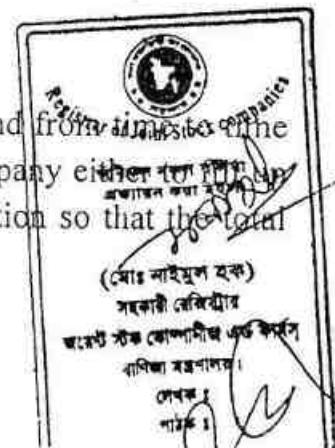 Registrar of Joint Stock Companies
nd from time to time
pany either to fill up
প্রত্যায়ন করা হইল
tion so that the total
(মোঃ নাইমুল হক)
সহকারী রেজিস্ট্রার
জয়েন্ট স্টক কোম্পানীজ এন্ড ফার্মস্
বাণিজ্য মন্ত্রণালয়।
লেখক :
পাঠক :